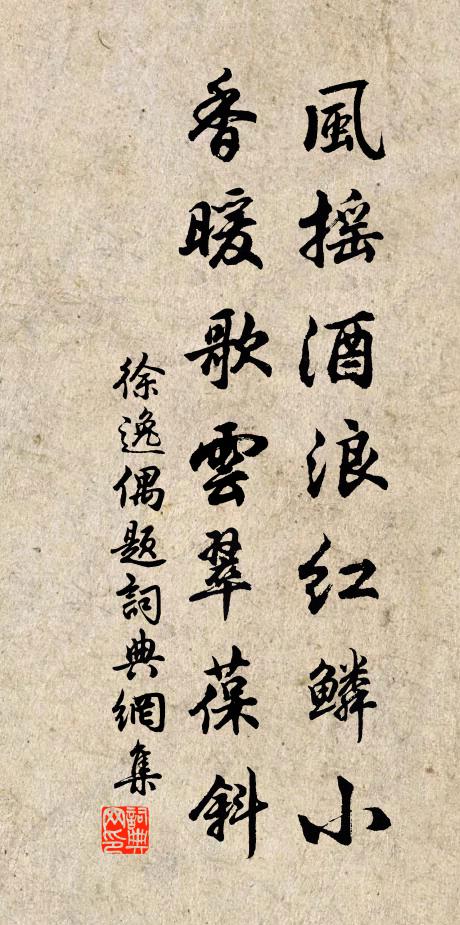 風摇酒浪红鱗小
香暖歌雲翠葆斜
徐逸偶题詞典網集
詞典网印